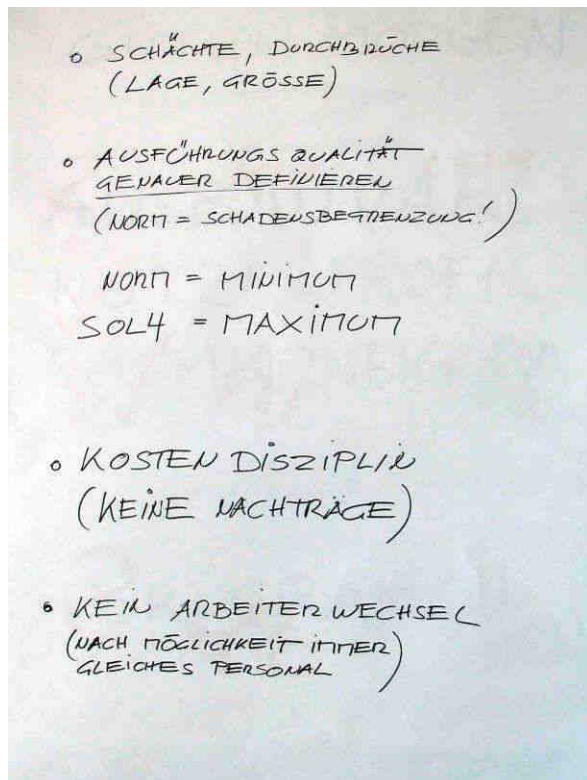 o SCHÄCHTE, DURCHBRÜCHE
(LAGE, GRÖSSE)
o AUSFÜHRUNGS QUALITÄT
GENAUER DEFINIEREN
(NORM = SCHADENSBEGRENZUNG!)
NORM = MINIMUM
SOL4 = MAXIMUM
o KOSTEN DISZIPLIN
(KEINE NACHTRÄGE)
• KEIN ARBEITER WECHSEL
(NACH MÖGLICHKEIT IMMER
GLEICHES PERSONAL)